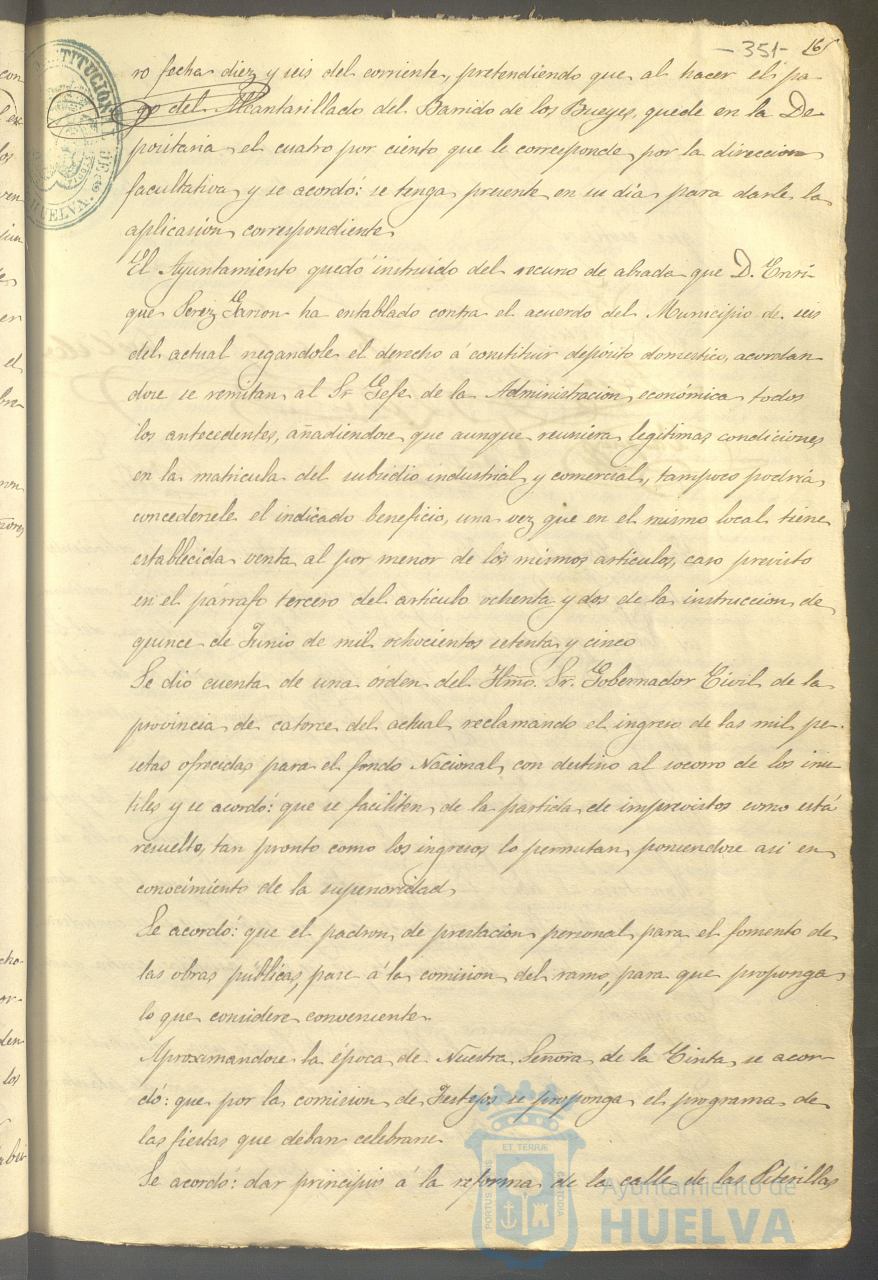 -351- 161
ro fecha diez y seis del corriente, pretendiendo que al hacer el pa-
go del Alcantarillado del Barrido de los Bueyes, quede en la De-
positaria el cuatro por ciento que le corresponde por la direccion
facultativa, y se acordó: se tenga presente en su dia para darle la
aplicasion correspondiente.
El Ayuntamiento quedó instruido del recurso de alzada que D. Enri-
que Perez Garzon ha entablado contra el acuerdo del Municipio de seis
del actual negandole el derecho á constituir depósito domestico, acordan
dose se remitan al Sr. Gefe de la Administracion económica todos
los antecedentes, añadiendose que aunque reuniera legitimas condiciones
en la matricula del subsidio industrial y comercial, tampoco podria
concedersele el indicado beneficio, una vez que en el mismo local tiene
establecida venta al por menor de los mismos articulos, caso previsto
en el párrafo tercero del articulo ochenta y dos de la instruccion de
quince de Junio de mil ochocientos setenta y cinco
Se dió cuenta de una órden del Iltmo. Sr. Gobernador Civil de la
provincia de catorce del actual reclamando el ingreso de las mil pe-
setas ofrecidas para el fondo Nacional, con destino al socorro de los inu-
tiles y se acordó: que se faciliten de la partida de imprevistos como está
resuelto, tan pronto como los ingresos lo permitan, poniendose asi en
conocimiento de la superioridad,
Se acordó: que el padron de prestacion personal para el fomento de
las obras públicas, pase á la comision del ramo, para que proponga
lo que considere conveniente.
Aproximandose la época de Nuestra Señora de la Cinta, se acor-
dó: que por la comision de Festejos se proponga el programa de
las fiestas que deban celebrarse
Se acordó: dar principio á la reforma de la calle de las Piterillas
CONSTITUCIONAL DE HUELVA.
ET TERRÆ
PORTUS
CUSTODIA
Ayuntamiento de
HUELVA